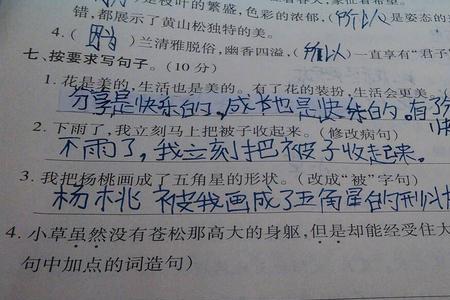 是枝叶的繁盛,色彩的浓郁,(所以)是姿态的
错,都展示了黄山松独特的美。
4.(因当)兰清雅脱俗,幽香四溢,(所以)一直享有“君子
七、按要求写句子。(10分)
1.花是美的,生活也是美的。有了花的装扮,生活会更美。
分享是快乐的,成长也是快乐的。有了分
2.下雨了,我立刻马上把被子收起来。(修改病句)
不雨了,我立刻把被子收起来。
3.我把杨桃画成了五角星的形状。(改成“被”字句)
杨桃被我画成了五角星的形状
4.小草虽然没有苍松那高大的身躯,但是却能经受住大
句中加点的词造句)